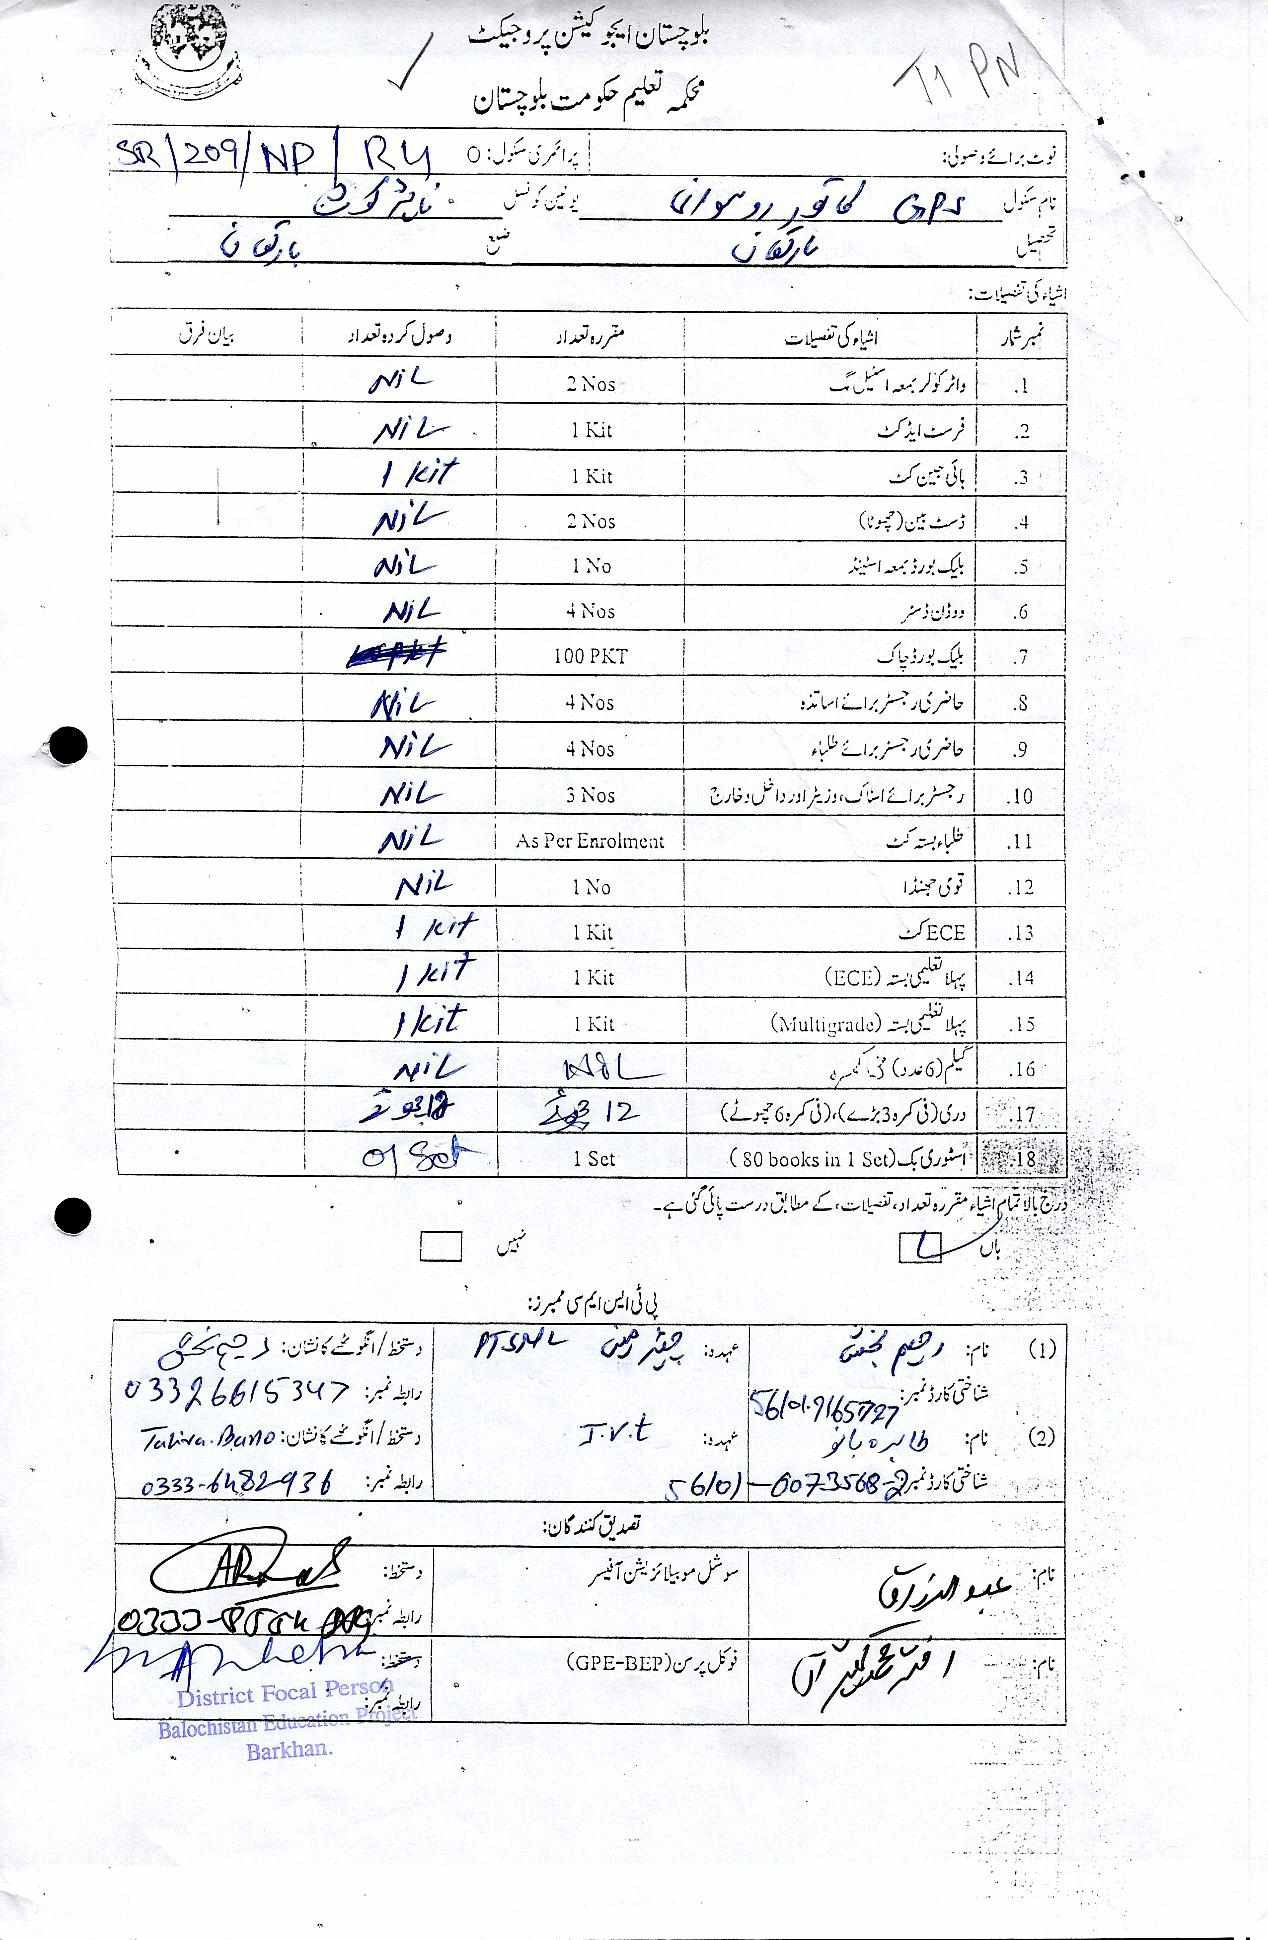 بلوچستان ایجوکیشن پروجیکٹ
T1 PN
محکمہ تعلیم حکومت بلوچستان
نوٹ برائے وصولی: پرائمری سکول: 0 SR/209/NP/R4
نام سکول GPS یونین کونسل
تحصیل بارکھان ضلع بارکھان
اشیاء کی تفصیلات:
نمبر شمار اشیاء کی تفصیلات مقررہ تعداد وصول کردہ تعداد بیان فرق
1. واٹر کولر بمعہ اسٹیل مگ 2 Nos NiL
2. فرسٹ ایڈ کٹ 1 Kit NiL
3. ہائی جین کٹ 1 Kit 1 Kit
4. ڈسٹ بین (چھوٹا) 2 Nos NiL
5. بلیک بورڈ بمعہ اسٹینڈ 1 No NiL
6. ووڈن ڈسٹر 4 Nos NiL
7. بلیک بورڈ چاک 100 PKT
8. حاضری رجسٹر برائے اساتذہ 4 Nos NiL
9. حاضری رجسٹر برائے طلباء 4 Nos NiL
10. رجسٹر برائے اسٹاک، وزیٹر اور داخل و خارج 3 Nos NiL
11. طلباء بستہ کٹ As Per Enrolment NiL
12. قومی جھنڈا 1 No NiL
13. ECE کٹ 1 Kit 1 Kit
14. پہلا تعلیمی بستہ (ECE) 1 Kit 1 KiT
15. پہلا تعلیمی بستہ (Multigrade) 1 Kit 1 Kit
16. (6 عدد) فی کمرہ NiL NiL
17. دری (فی کمرہ 3 بڑے)، (فی کمرہ 6 چھوٹے) 12
18. اسٹوری بک (80 books in 1 Set) 1 Set 01 Set
درج بالا تمام اشیاء مقررہ تعداد، تفصیلات، کے مطابق درست پائی گئی ہے۔
ہاں نہیں
پی ٹی ایس ایم سی ممبرز:
(1) نام: رحیم بخش عہدہ: چیئرمین دستخط/انگوٹھے کا نشان: رحیم بخش
شناختی کارڈ نمبر: رابطہ نمبر: 03326615347
(2) نام: طاہرہ بانو عہدہ: J.V.t دستخط/انگوٹھے کا نشان: Tahira Bano
شناختی کارڈ نمبر رابطہ نمبر: 0333-6482936
تصدیق کنندگان:
نام: عبدالرزاق سوشل موبیلائزیشن آفیسر دستخط:
رابطہ نمبر:
نام: فوکل پرسن (GPE-BEP) دستخط:
رابطہ نمبر:
District Focal Person
Balochistan Education Project
Barkhan.